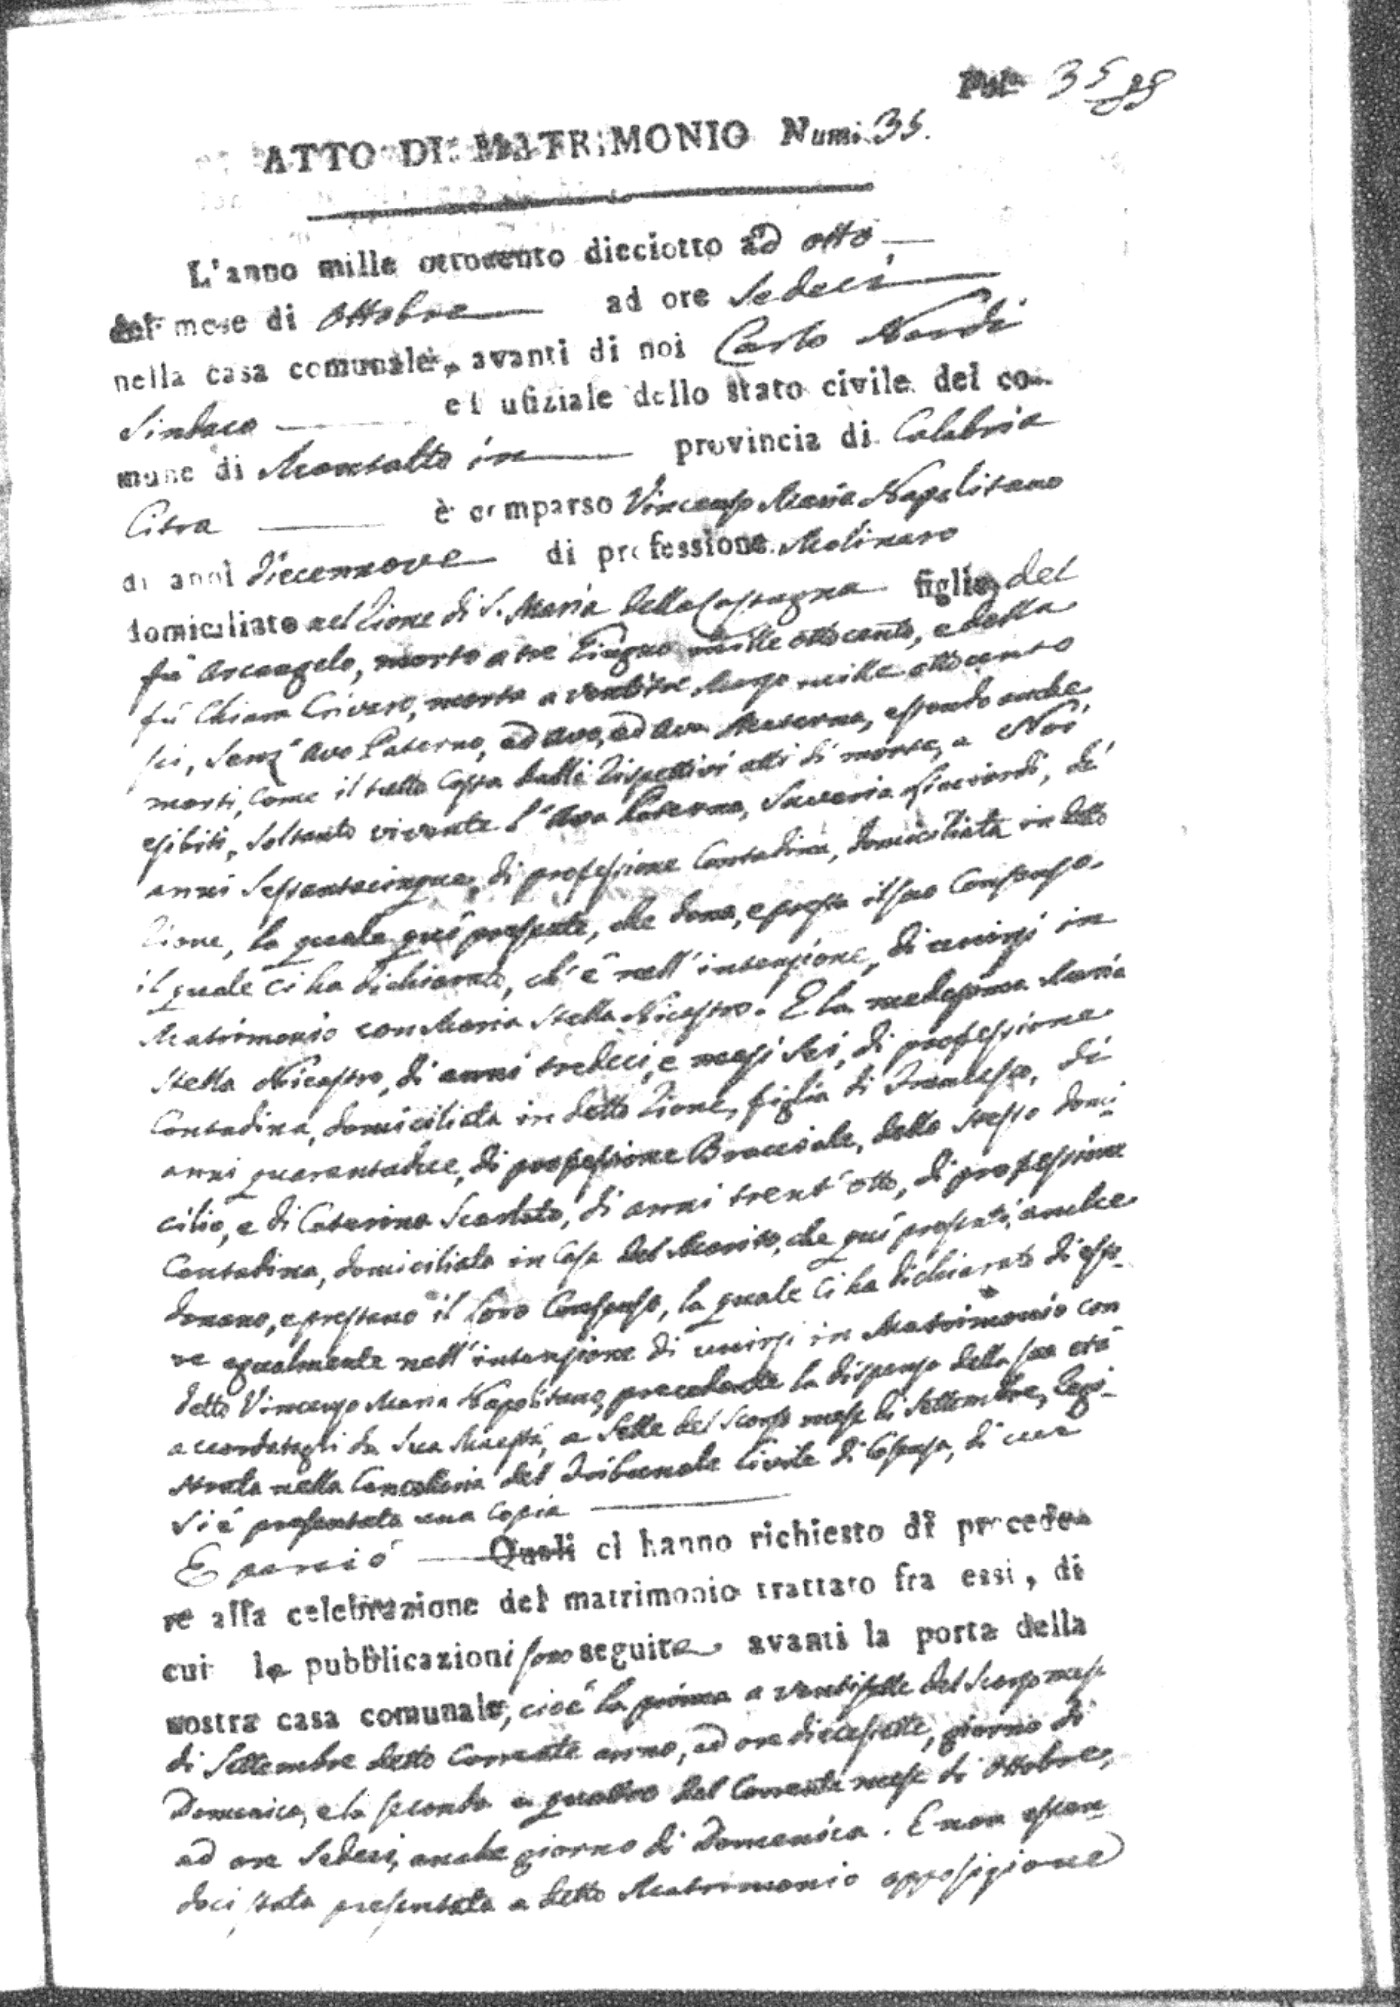 Pol. 35
ATTO DI MATRIMONIO Num. 35.
L'anno mille ottocento dieciotto ad otto
del mese di Ottobre ad ore Sedeci
nella casa comunale, avanti di noi Carlo Nardi
Sindaco ed ufiziale dello stato civile del co-
mune di Montalto in provincia di Calabria
Citra è comparso Vincenzo Maria Napolitano
di anni diecennove di professione Molinaro
domiciliato nel Rione di S. Maria della Castagna figlio del
fù Arcangelo, morto a tre Giugno mille ottocento, e della
fù Chiara Crivaro, morta a ventitre Marzo mille ottocento
sei, Senz' Avo Paterno, ed Avo, ed Ava Materna, essendo anche
morti, come il tutto costa dalli rispettivi atti di morte, a Noi
esibiti, soltanto vivente l'Ava Paterna, Saveria, di
anni Sessantacinque, di professione Contadina, domiciliata in detto
Rione, la quale quì presente, che dona, e presta il suo Consenso.
il quale ci ha dichiarato, ch'è nell'intenzione, di unirsi in
Matrimonio con Maria Stella Nicastro. E la medesima Maria
Stella Nicastro, di anni tredeci, e mesi sei, di professione
Contadina, domiciliata in detto Rione, figlia di Francesco, di
anni quarantadue, di professione Bracciale, dello stesso domi-
cilio, e di Caterina Scarlato, di anni trent'otto, di professione
Contadina, domiciliata in Casa del Marito, che quì presenti, anche
donano, e prestano il loro Consenso, la quale ci ha dichiarato di esse-
re egualmente nell'intenzione di unirsi in Matrimonio con
detto Vincenzo Maria Napolitano, precedente la dispensa della sua età
accordatagli da Sua Maestà, a Sette del Scorso mese di Settembre, Regi-
strata nella Cancelleria del Tribunale Civile di Cosenza, di cui
si è presentata una Copia
E perciò Quali ci hanno richiesto di procede-
re alla celebrazione del matrimonio trattato fra essi, di
cui le pubblicazioni sono seguite avanti la porta della
nostra casa comunale, cioè la prima a ventisette del Scorso mese
di Settembre detto Corrente anno, ad ore diecesette, giorno di
Domenica, e la seconda a quattro del Corrente mese di Ottobre,
ad ore Sedeci, anche giorno di Domenica. E non essen-
doci stata presentata a detto Matrimonio opposizione